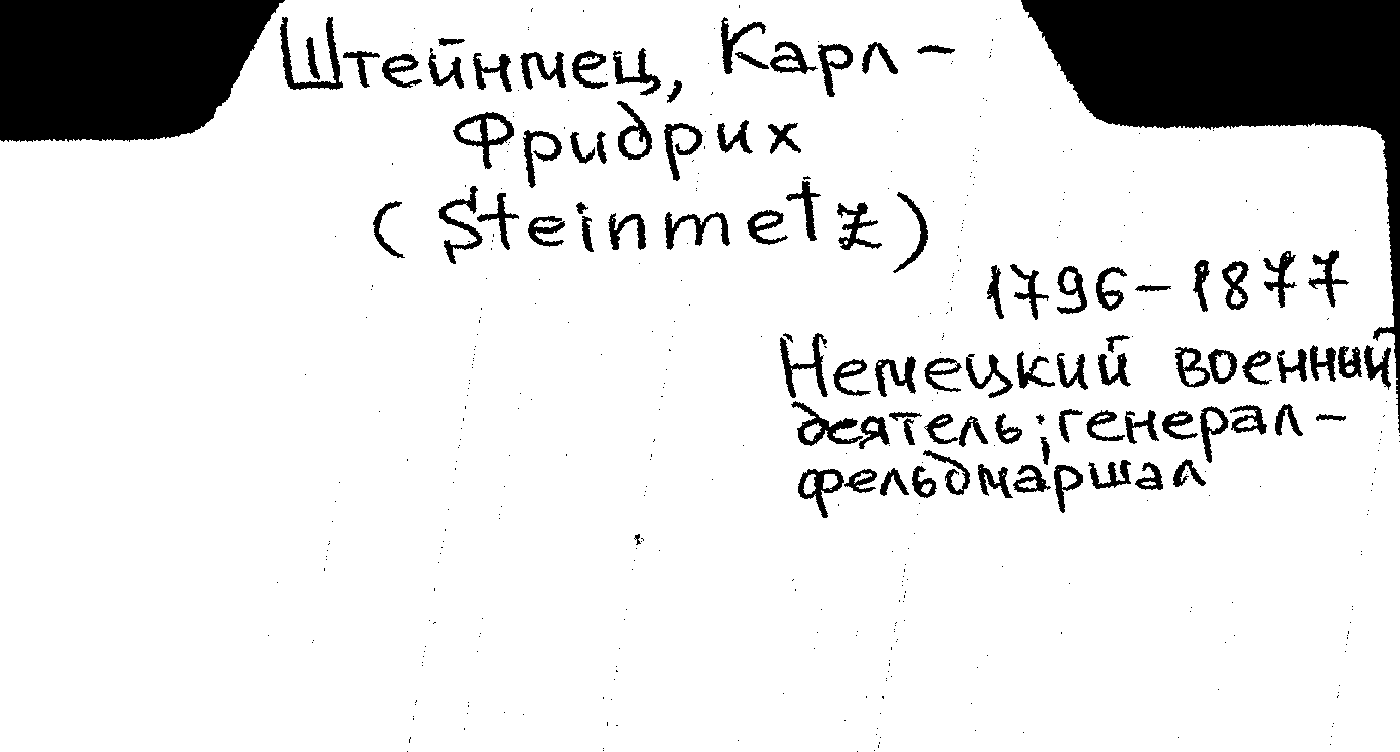 Штейнмец, Карл-
Фридрих
(Steinmetz)
1796-1877
Немецкий военный
деятель; генерал-
фельдмаршал